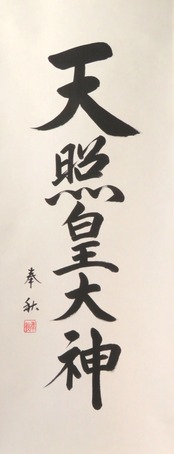 天照皇大神
奉秋